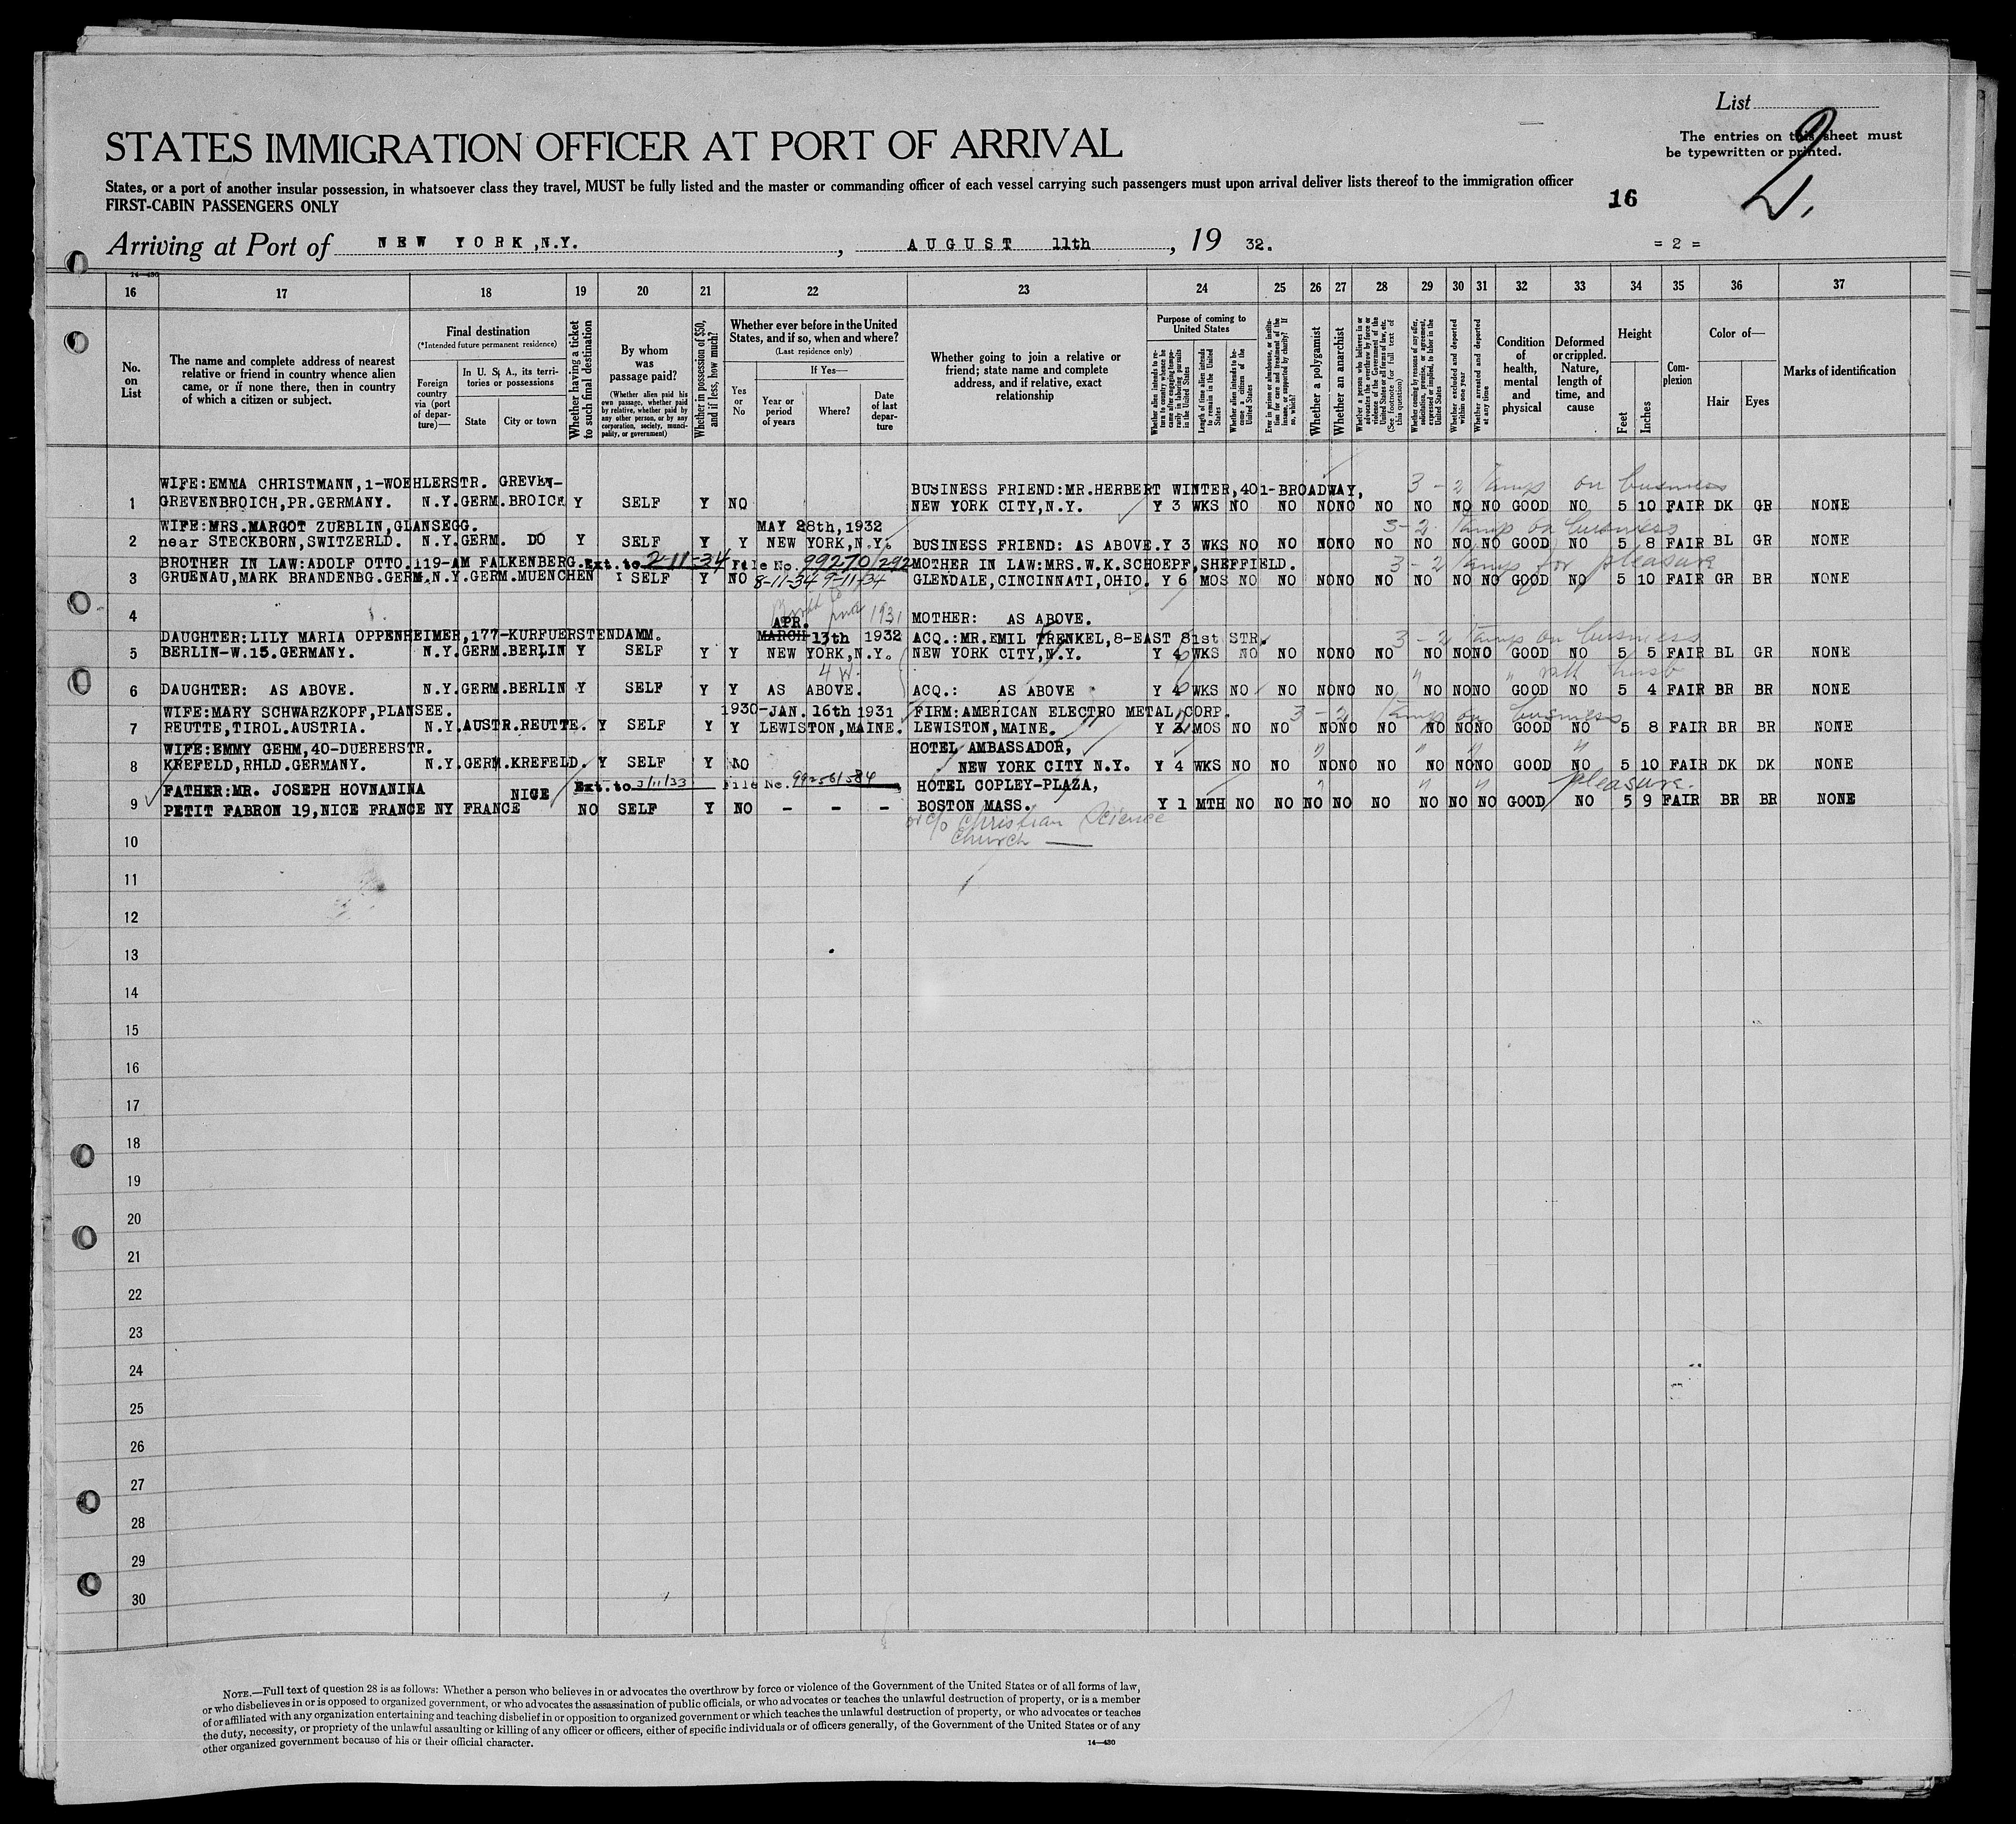 List
STATES IMMIGRATION OFFICER AT PORT OF ARRIVAL
The entries on this sheet must
be typewritten or printed.
2.
States, or a port of another insular possession, in whatsoever class they travel, MUST be fully listed and the master or commanding officer of each vessel carrying such passengers must upon arrival deliver lists thereof to the immigration officer
FIRST-CABIN PASSENGERS ONLY
16
Arriving at Port of NEW YORK, N.Y., AUGUST 11th, 19 32.
= 2 =
14—430
16 17 18 19 20 21 22 23 24 25 26 27 28 29 30 31 32 33 34 35 36 37
No. on List
The name and complete address of nearest relative or friend in country whence alien came, or if none there, then in country of which a citizen or subject.
Final destination
(*Intended future permanent residence)
Foreign country via (port of departure)—
In U. S. A., its territories or possessions
State
City or town
Whether having a ticket to such final destination
By whom was passage paid?
(Whether alien paid his own passage, whether paid by relative, whether paid by any other person, or by any corporation, society, municipality, or government)
Whether in possession of $50, and if less, how much?
Whether ever before in the United States, and if so, when and where?
(Last residence only)
Yes or No
If Yes—
Year or period of years
Where?
Date of last departure
Whether going to join a relative or friend; state name and complete address, and if relative, exact relationship
Purpose of coming to United States
Whether alien intends to return to country whence he came after engaging temporarily in laboring pursuits in the United States
Length of time alien intends to remain in the United States
Whether alien intends to become a citizen of the United States
Ever in prison or almshouse, or institution for care and treatment of the insane, or supported by charity? If so, which?
Whether a polygamist
Whether an anarchist
Whether a person who believes in or advocates the overthrow by force or violence of the Government of the United States or all forms of law, etc. (See footnote for full text of this question)
Whether coming by reason of any offer, solicitation, promise, or agreement, expressed or implied, to labor in the United States
Whether excluded and deported within one year
Whether arrested and deported at any time
Condition of health, mental and physical
Deformed or crippled. Nature, length of time, and cause
Height
Feet
Inches
Complexion
Color of—
Hair
Eyes
Marks of identification
WIFE:EMMA CHRISTMANN,1-WOEHLERSTR. GREVEN-
BUSINESS FRIEND:MR.HERBERT WINTER,401-BROADWAY, 3-2 Temp on business
1 GREVENBROICH,PR.GERMANY. N.Y.GERM.BROICH Y SELF Y NO NEW YORK CITY,N.Y. Y 3 WKS NO NO NO NO NO NO NO NO GOOD NO 5 10 FAIR DK GR NONE
WIFE:MRS.MARGOT ZUEBLIN,GLANSEGG. MAY 28th,1932 3-2 Temp on business
2 near STECKBORN,SWITZERLD. N.Y.GERM. DO Y SELF Y Y NEW YORK,N.Y. BUSINESS FRIEND: AS ABOVE. Y 3 WKS NO NO NO NO NO NO NO NO GOOD NO 5 8 FAIR BL GR NONE
BROTHER IN LAW:ADOLF OTTO.119-AM FALKENBERG. Ext.to 2-11-34 File No. 99270/292 MOTHER IN LAW:MRS.W.K.SCHOEPF,SHEFFIELD. 3-2 Temp for pleasure
3 GRUENAU,MARK BRANDENBG.GERM.N.Y.GERM.MUENCHEN SELF Y NO 8-11-34 9-11-34 GLENDALE,CINCINNATI,OHIO. Y 6 MOS NO NO NO NO NO NO NO NO GOOD NO 5 10 FAIR GR BR NONE
1931
4 APR. MOTHER: AS ABOVE.
DAUGHTER:LILY MARIA OPPENHEIMER,177-KURFUERSTENDAMM. MARCH 13th 1932 ACQ.:MR.EMIL TRENKEL,8-EAST 81st STR. 3-2 Temp on business
5 BERLIN-W.15.GERMANY. N.Y.GERM.BERLIN Y SELF Y Y NEW YORK,N.Y. NEW YORK CITY,N.Y. Y 4 WKS NO NO NO NO NO NO NO NO GOOD NO 5 5 FAIR BL GR NONE
4 W. " " husb
6 DAUGHTER: AS ABOVE. N.Y.GERM.BERLIN Y SELF Y Y AS ABOVE. ACQ.: AS ABOVE Y 4 WKS NO NO NO NO NO NO NO NO GOOD NO 5 4 FAIR BR BR NONE
WIFE:MARY SCHWARZKOPF,PLANSEE. 1930-JAN. 16th 1931 FIRM:AMERICAN ELECTRO METAL CORP. 3-2 Temp on business
7 REUTTE,TIROL.AUSTRIA. N.Y.AUSTR.REUTTE. Y SELF Y Y LEWISTON,MAINE. LEWISTON,MAINE. Y 2 MOS NO NO NO NO NO NO NO NO GOOD NO 5 8 FAIR BR BR NONE
WIFE:EMMY GEHM,40-DUERERSTR. HOTEL AMBASSADOR, " " " "
8 KREFELD,RHLD.GERMANY. N.Y.GERM.KREFELD. Y SELF Y NO NEW YORK CITY N.Y. Y 4 WKS NO NO NO NO NO NO NO NO GOOD NO 5 10 FAIR DK DK NONE
FATHER:MR. JOSEPH HOVNANINA NICE Ext.to 3/11/33 File No. 99256/584 HOTEL COPLEY-PLAZA, " " " pleasure.
9 PETIT FABRON 19,NICE FRANCE NY FRANCE NO SELF Y NO - - - BOSTON MASS. Y 1 MTH NO NO NO NO NO NO NO NO GOOD NO 5 9 FAIR BR BR NONE
or c/o Christian Science
Church —
10
11
12
13
14
15
16
17
18
19
20
21
22
23
24
25
26
27
28
29
30
NOTE.—Full text of question 28 is as follows: Whether a person who believes in or advocates the overthrow by force or violence of the Government of the United States or of all forms of law,
or who disbelieves in or is opposed to organized government, or who advocates the assassination of public officials, or who advocates or teaches the unlawful destruction of property, or is a member
of or affiliated with any organization entertaining and teaching disbelief in or opposition to organized government or which teaches the unlawful destruction of property, or who advocates or teaches
the duty, necessity, or propriety of the unlawful assaulting or killing of any officer or officers, either of specific individuals or of officers generally, of the Government of the United States or of any
other organized government because of his or their official character.
14—430